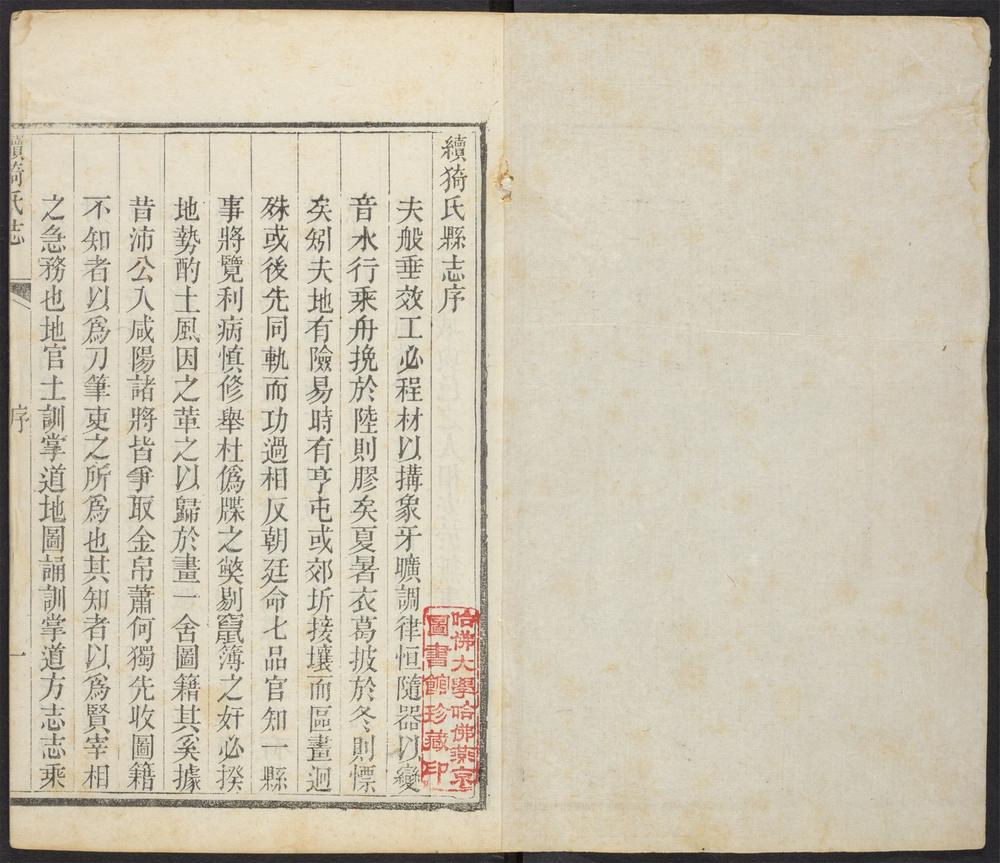 續猗氏縣志序
夫般垂效工必程材以搆象牙曠調律恒隨器以變
音水行乘舟挽於陸則膠矣夏暑衣葛披於冬則慄
矣矧夫地有險易時有亨屯或郊圻接壤而區畫迥
殊或後先同軌而功過相反朝廷命七品官知一縣
事將覽利病慎修舉杜僞牒之獘剔竄簿之奸必揆
地勢酌土風因之革之以歸於畫一舍圖籍其奚據
昔沛公入咸陽諸將皆爭取金帛蕭何獨先收圖籍
不知者以爲刀筆吏之所爲也其知者以爲賢宰相
之急務也地官土訓掌道地圖誦訓掌道方志志乘
續猗氏志
序
一
哈佛大學哈佛燕京
圖書館珍藏印